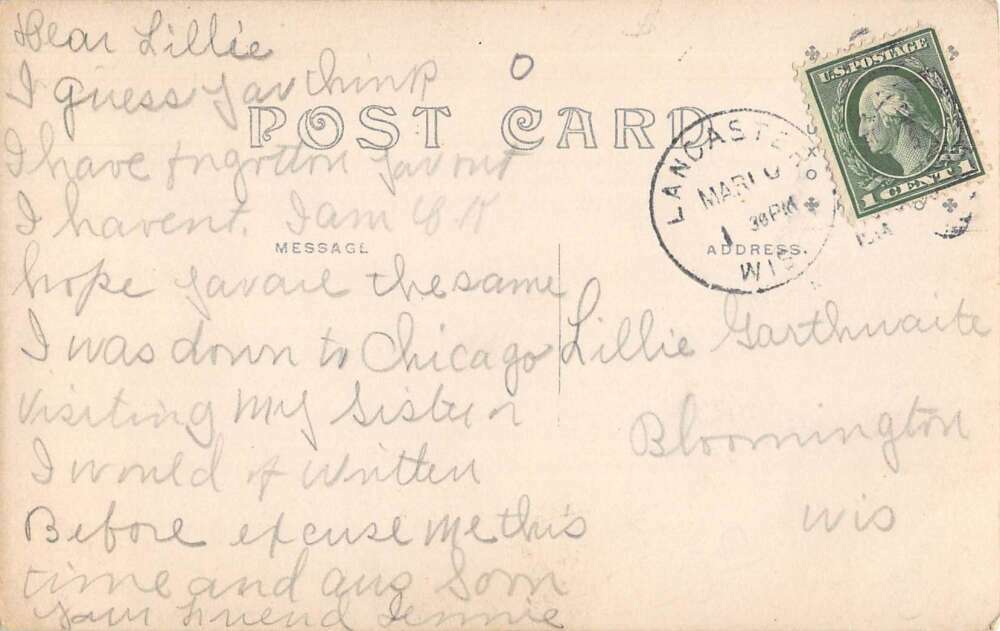 Dear Lillie
I guess yau think
POST CARD
I have forgotton yau but
I havent. I am O K
MESSAGE
hope yau are the same
I was down to Chicago
visiting my Sister
I would of written
Before excuse me this
time and ans Som
yaur friend Jennie
U.S. POSTAGE
1 CENT 1
LANCASTER
MAR 10
30 PM
WIS
ADDRESS.
Lillie Garthwaite
Bloomington
Wis